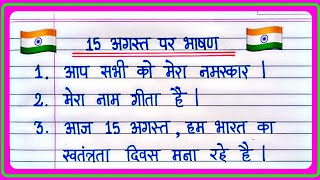 15 अगस्त पर भाषण
1. आप सभी को मेरा नमस्कार |
2. मेरा नाम गीता है |
3. आज 15 अगस्त , हम भारत का
स्वतंत्रता दिवस मना रहे है |